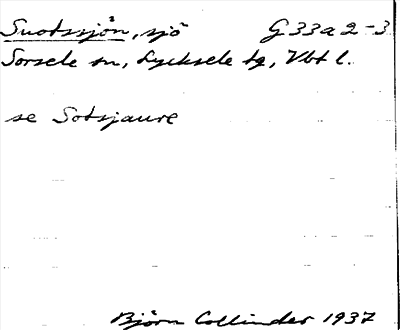 Suotssjön, sjö G 33 a 2-3
Sorsele sn, Lycksele tg, Vbt l.
se Sotsjaure
Björn Collinder 1937